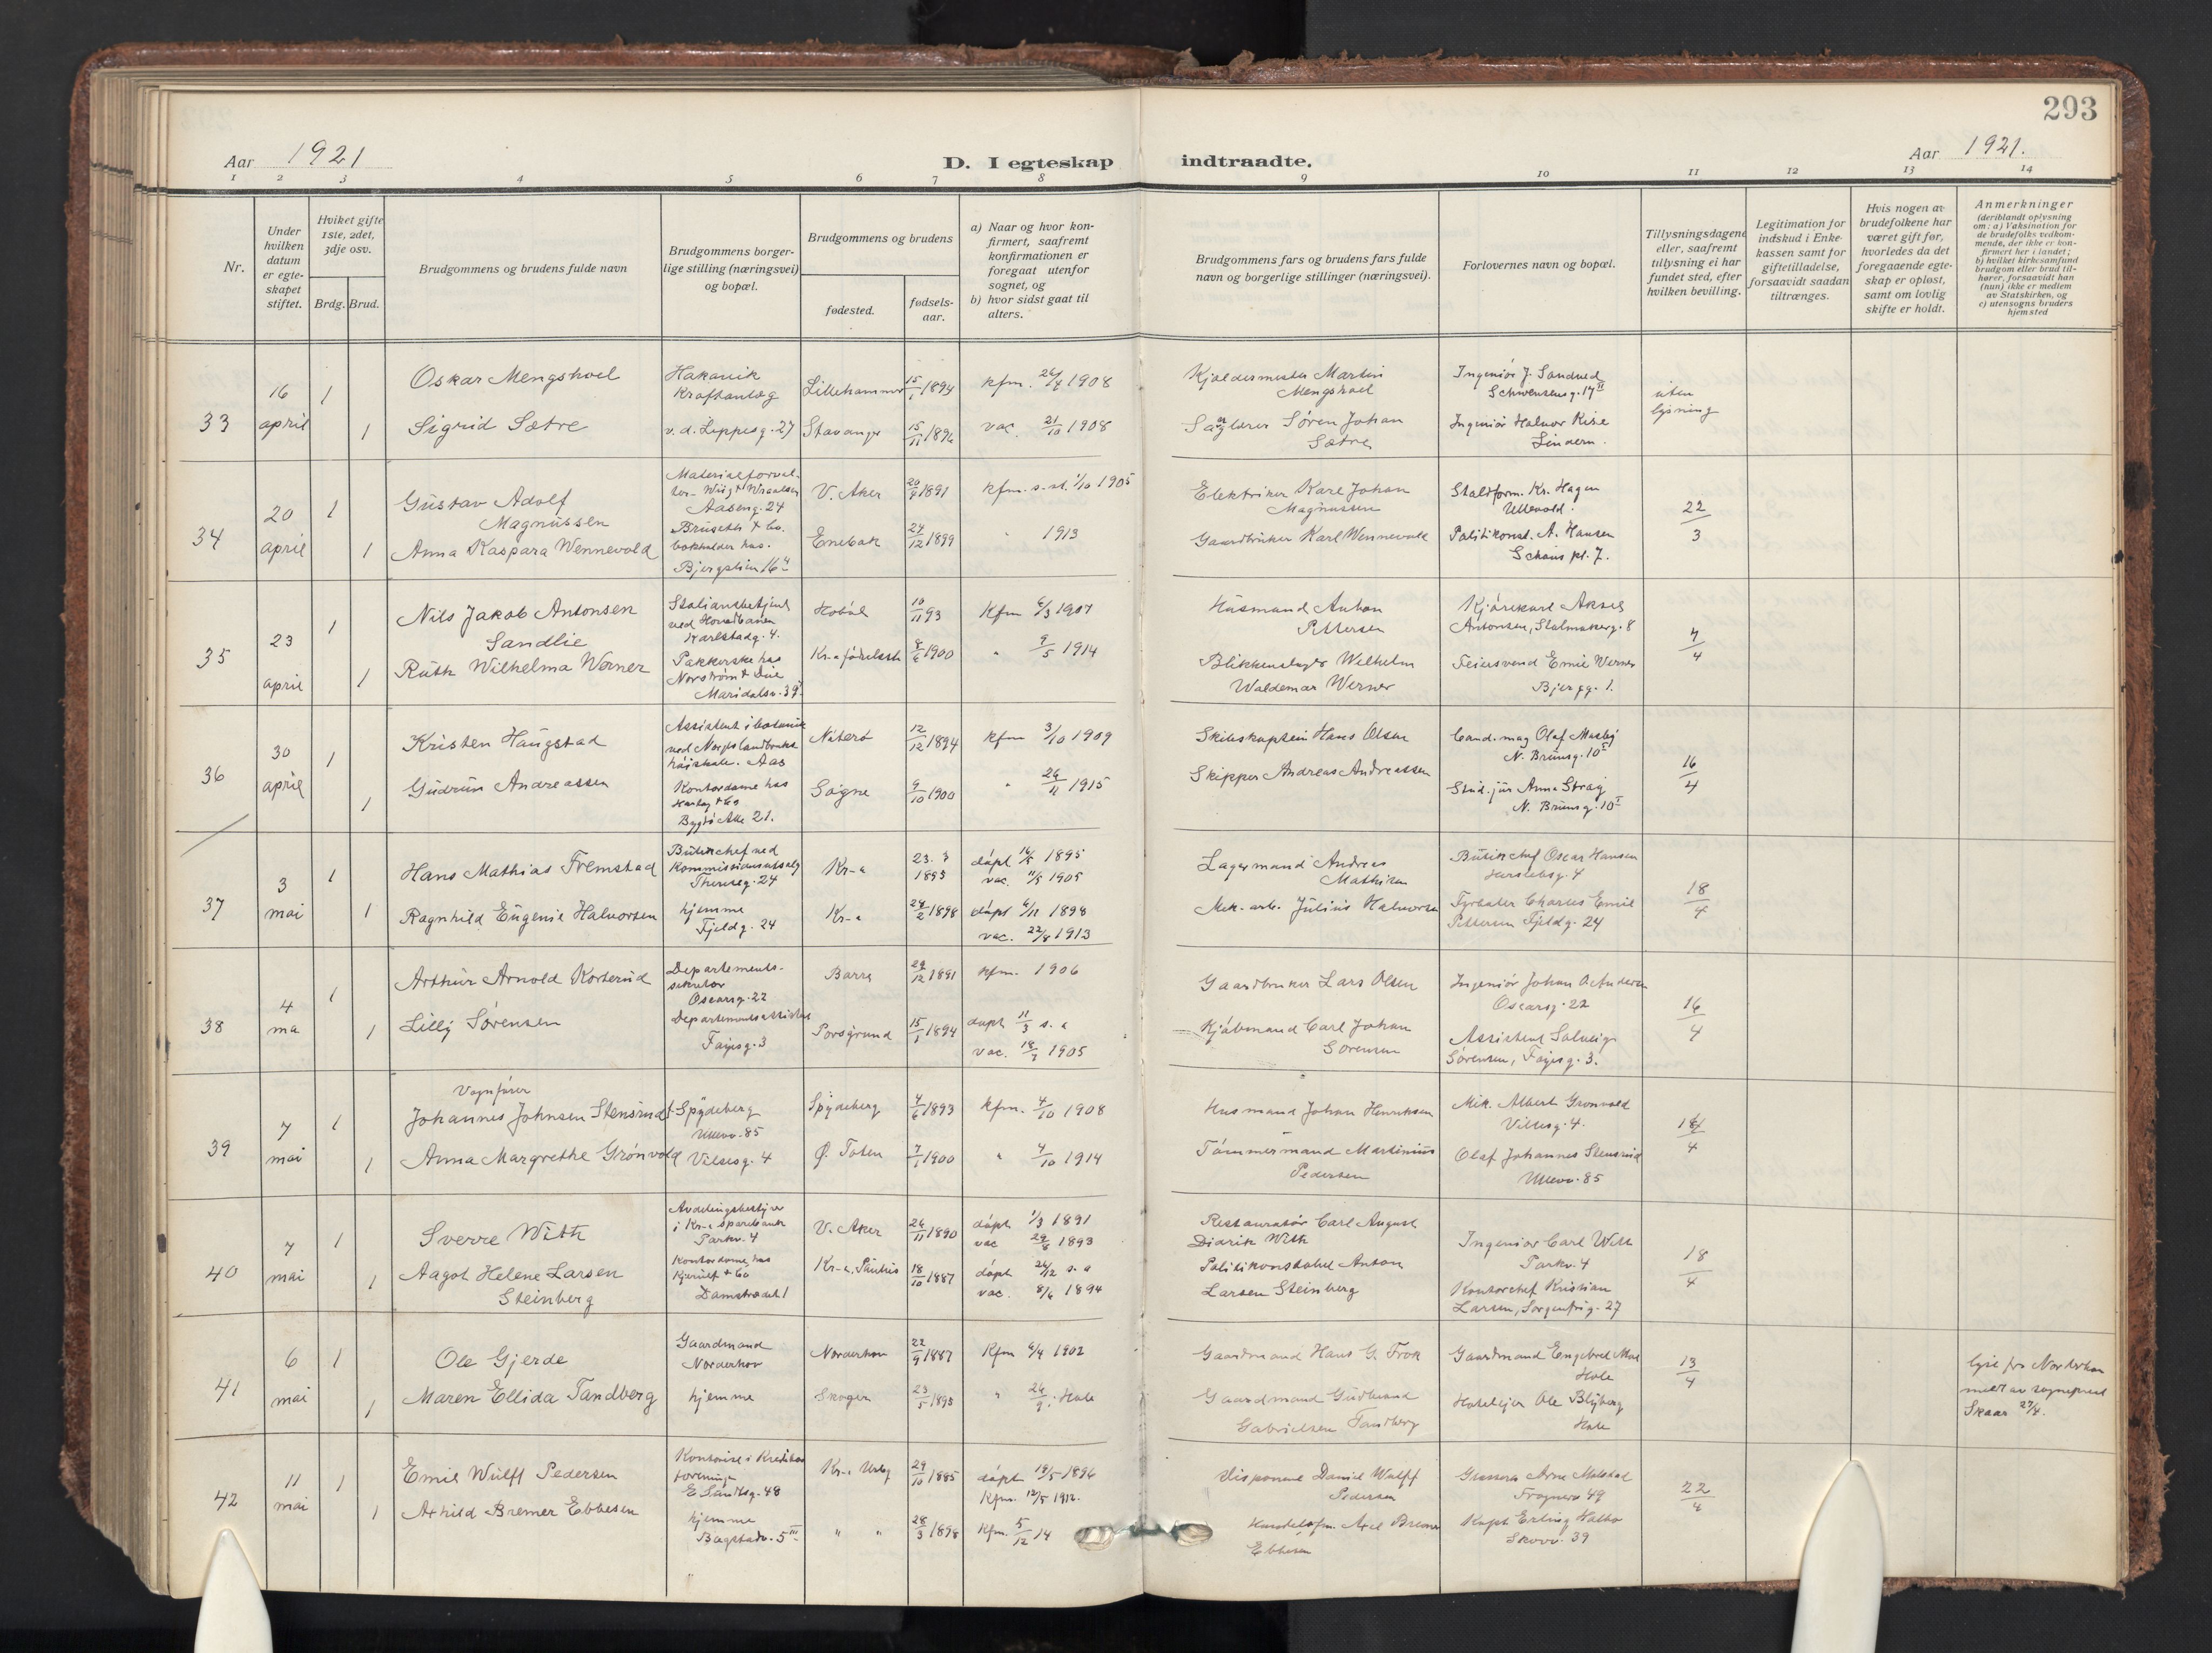 293
Aar 1921
D. I egteskap indtraadte.
Aar 1921.
1 2 3 4 5 6 7 8 9 10 11 12 13 14
Nr.
Under hvilken datum er egteskapet stiftet.
Hviket gifte 1ste, 2det, 3dje osv.
Brdg. Brud.
Brudgommens og brudens fulde navn
Brudgommens borgerlige stilling (næringsvei) og bopæl.
Brudgommens og brudens
fødested.
fødselsaar.
a) Naar og hvor konfirmert, saafremt konfirmationen er foregaat utenfor sognet, og
b) hvor sidst gaat til alters.
Brudgommens fars og brudens fars fulde navn og borgerlige stillinger (næringsvei).
Forlovernes navn og bopæl.
Tillysningsdagene eller, saafremt tillysning ei har fundet sted, efter hvilken bevilling.
Legitimation for indskud i Enkekassen samt for giftetilladelse, forsaavidt saadan tiltrænges.
Hvis nogen av brudefolkene har været gift før, hvorledes da det foregaaende egteskap er opløst, samt om lovlig skifte er holdt.
Anmerkninger
(deriblandt oplysning om: a) Vaksination for de brudefolks vedkommende, der ikke er konfirmert her i landet;
b) hvilket kirkesamfund brudgom eller brud tilhører, forsaavidt han (hun) ikke er medlem av Statskirken, og
c) utensogns bruders hjemsted
33
16 april
1
Oskar Mengshoel
Kraftanlæg
Lillehammer
1894
kfm. 26/4 1908
Martin Mengshoel
Ingeniør J. Sandved
Schwensensg. 17 II
uten lysning
1
Sigrid Sætre
v. d. Lippesg. 27
Stavanger
vac. 21/10 1908
Søren Johan Sætre
Ingeniør Halvor Kise
Lindern.
34
20 april
1
Gustav Adolf Magnussen
Materialforvalter
Aaseng. 24
V. Aker
1891
kfm. s. st. 1/10 1905
Elektriker Karl Johan Magnussen
Staldform. Kr. Hagen
Ullevold.
22/3
1
Anna Kaspara Wennevold
Bruseth & Co. bokholder hos.
Bjergslien 16
Enebak
24/12 1899
" 1913
Gaardbruker Karl Wennevold
Politikonst. A. Hansen
Schous pl. 7.
35
23 april
1
Nils Jakob Antonsen Sandlie
Stationsbetjent ved Hovedbanen
Karlstadg. 4.
Hobøl
10/11 93
Kfm 6/3 1907
Husmand Anton Pettersen
Kjørekarl Aksel Antonsen, Stolmakerg. 8
4/4
1
Ruth Wilhelma Werner
Pakkerske hos
Maridalsv. 39
Kr-a fødselsst.
8/6 1900
" 9/5 1914
Blikkenslager Wilhelm Waldemar Werner
Feiersvend Emil Werner
Bjergg. 1.
36
30 april
1
Kristen Haugstad
Assistent i botanik ved Norges landbrukshøiskole. Aas
Nøterø
12/12 1894
kfm 3/10 1909
Skibskaptein Hans Olsen
Cand. mag Olaf
N. Brunsg. 10 I
16/4
1
Gudrun Andreassen
Kontordame hos
Bygdø Alle 21.
Søgne
9/10 1900
" 26/11 1915
Skipper Andreas Andreassen
Stud. jur Anna Stray
N. Brunsg. 10 I
37
3 mai
1
Hans Mathias Fremstad
Butikchef ved Kommissionsutsalg
Theresesg. 24
Kr-a
23. 3 1893
døpt 16/5 1895
vac. 11/5 1905
Lagermand Andreas Mathisen
Butikchef Oscar Hansen
Herslebsg. 4
18/4
1
Ragnhild Eugenie Halvorsen
hjemme
Fjeldg. 24
Kr-a
24/2 1898
døpt 6/11 1898
vac. 22/8 1913
Mek. arb. Julius Halvorsen
Fyrbøter Charles Emil Pettersen Fjeldg. 24
38
4 ma
1
Arthur Arnold Korterud
Departementssekretær
Oscarsg. 22
Borre
29/12 1891
kfm. 1906
Gaardbruker Lars Olsen
Ingeniør Johan
Oscarsg. 22
16/4
1
Lilly Sørensen
Departementsassistent
Fayesg. 3
Porsgrund
1894
døpt 11/3 s. a
vac. 1905
Kjøbmand Carl Johan Sørensen
Assistent Solveig Sørensen, Fayesg. 3.
39
7 mai
1
Vognfører
Johannes Johnsen Stensrud
Spydeberg
Ullevv. 85
Spydeberg
4/6 1893
kfm. 4/10 1908
Husmand Johan Henriksen
Mek. Albert Grønvold
Vilsesg. 4.
1
Anna Margrethe Grønvold
Vilsesg. 4
Ø. Toten
7/1 1900
" 4/10 1914
Tømmermand Martinius Pedersen
Olaf Johannes Stensrud
Ullevv. 85
40
7 mai
1
Sverre With
Avdelingsbestyrer i Kr-a sparebank
Parkv. 4
V. Aker
26/11 1890
døpt 1/3 1891
vac 29/8 1893
Restauratør Carl August Didrik With
Ingeniør Carl With
Parkv. 4
18/4
1
Aagot Helene Larsen Steinberg
Kontordame hos Kjerulf & Co
Damstrædet 1
Kr-a, Paulus
18/10 1887
døpt 26/12 s. a
vac. 8/6 1894
Politikonstabel Anton Larsen Steinberg
Kontorchef Kristian Larsen, Sorgenfrig. 27
41
6 mai
1
Ole Gjerde
Gaardmand
Norderhov
Norderhov
22/9 1887
Kfm 6/4 1902
Gaardmand Hans G. Frok
Gaardmand Engebret Moe
Hole
13/4
lyst for Norderhov
meldt av sogneprest
Skaar 27/4.
1
Maren Ellida Tandberg
hjemme
Skoger
23/5 1895
" 26/9. Hole
Gaardmand Gudbrand Gabrielsen Tandberg
Hoteleier Ole Blyberg
Hole
42
11 mai
1
Emil Wulff Pedersen
Kontorist i
foreningen
E. Sundtsg. 48
Kr-a Urbg
29/10 1885
døpt 19/5 1896
Kfm. 12/5 1912.
Disponent Daniel Wulff Pedersen
Grosserer Arne
Frognerv 49
22/4
1
Arhild Bremer Ebbesen
hjemme
Bogstadv. 5 III
" "
28/3 1898
Kfm. 5/12 14
Axel Bremer Ebbesen
Kapt Erling
Skovv. 39